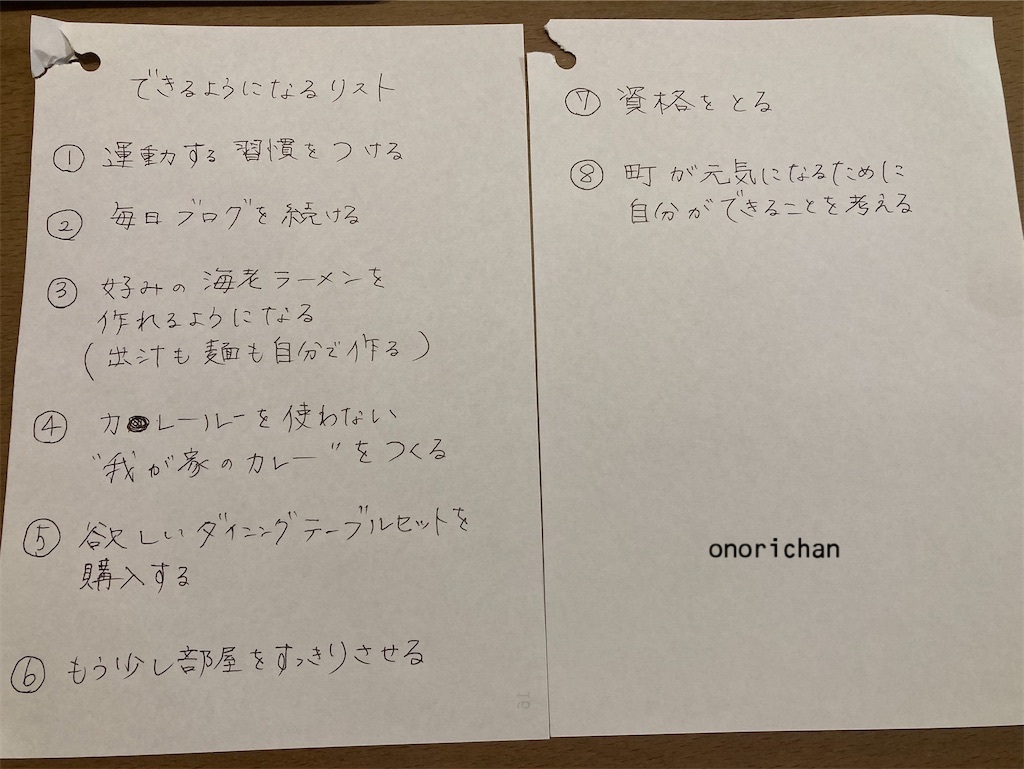 できるようになるリスト
① 運動する習慣をつける
② 毎日ブログを続ける
③ 好みの海老ラーメンを
作れるようになる
(出汁も麺も自分で作る)
④ カレールーを使わない
"我が家のカレー"をつくる
⑤ 欲しいダイニングテーブルセットを
購入する
⑥ もう少し部屋をすっきりさせる
⑦ 資格をとる
⑧ 町が元気になるために
自分ができることを考える
onorichan